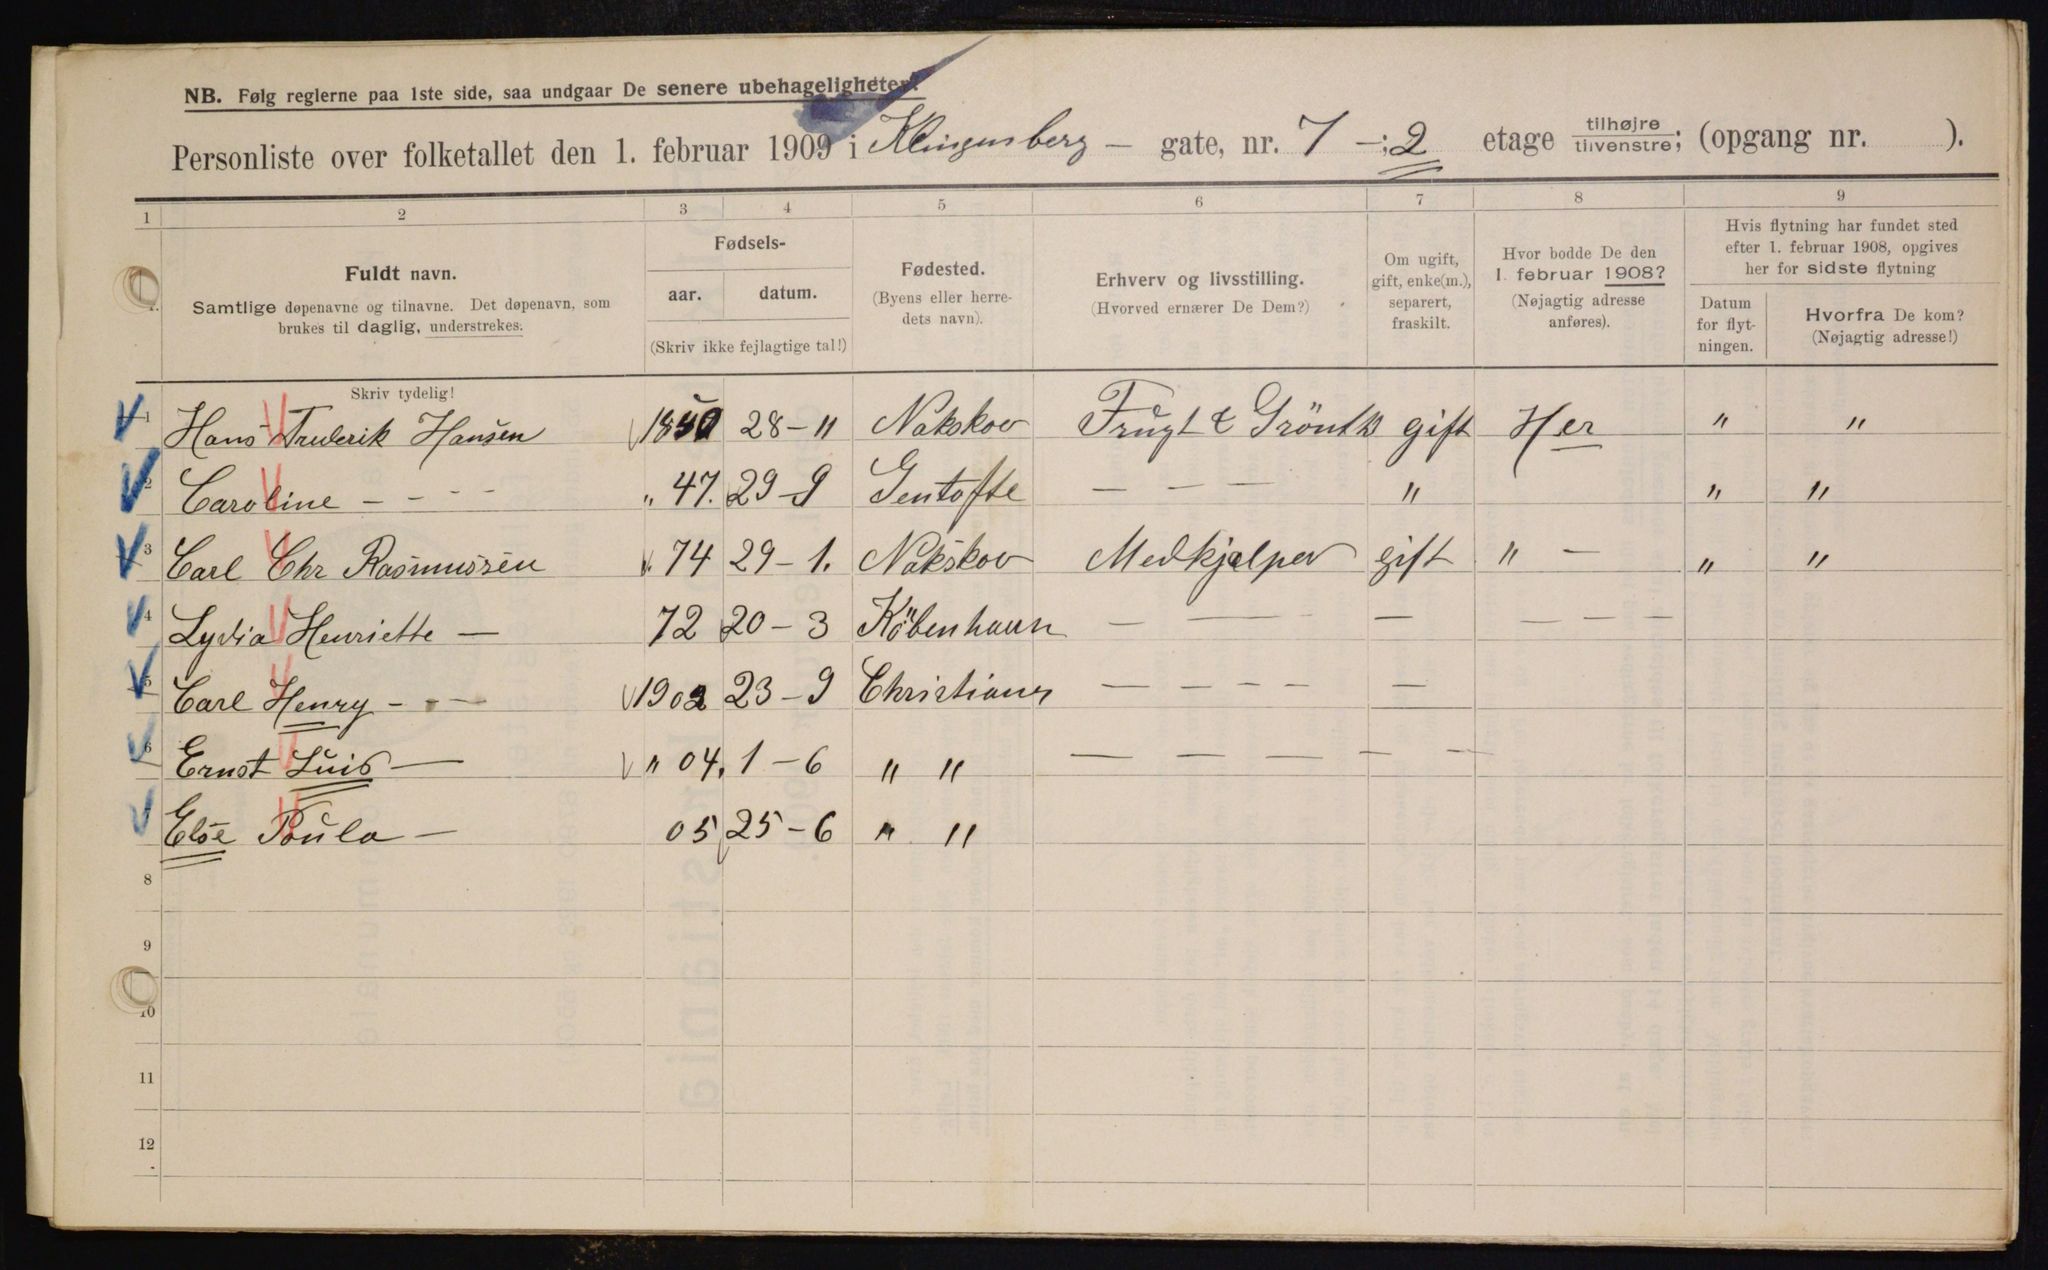 NB. Følg reglerne paa 1ste side, saa undgaar De senere ubehageligheter!
Personliste over folketallet den 1. februar 1909 i Klingenberg – gate, nr. 7 –; 2 etage tilhøjre/tilvenstre; (opgang nr. ).
1 2 3 4 5 6 7 8 9
Fuldt navn.
Samtlige døpenavne og tilnavne. Det døpenavn, som
brukes til daglig, understrekes.
Fødsels-
aar. datum.
(Skriv ikke fejlagtige tal!)
Fødested.
(Byens eller herre-
dets navn).
Erhverv og livsstilling.
(Hvorved ernærer De Dem?)
Om ugift,
gift, enke(m.),
separert,
fraskilt.
Hvor bodde De den
1. februar 1908?
(Nøjagtig adresse
anføres).
Hvis flytning har fundet sted
efter 1. februar 1908, opgives
her for sidste flytning
Datum
for flyt-
ningen.
Hvorfra De kom?
(Nøjagtig adresse!)
Skriv tydelig!
1 Hans Frederik Hansen 1850 28 – 11 Nakskov Frugt & Grönth gift Her " "
2 Caroline – - - - " 47. 29 – 9 Gentofte — — — " " "
3 Carl Chr Rasmussen 74 29 – 1. Nakskov Medhjælper gift " — " "
4 Lydia Henriette — 72 20 – 3 København — — — — — — —
5 Carl Henry - - — 1902 23 – 9 Christiania — — — — —
6 Ernst Luis — " 04. 1 – 6 " " — — — — — —
Else Paula — 05 25 – 6 " "
8
9
10
11
12